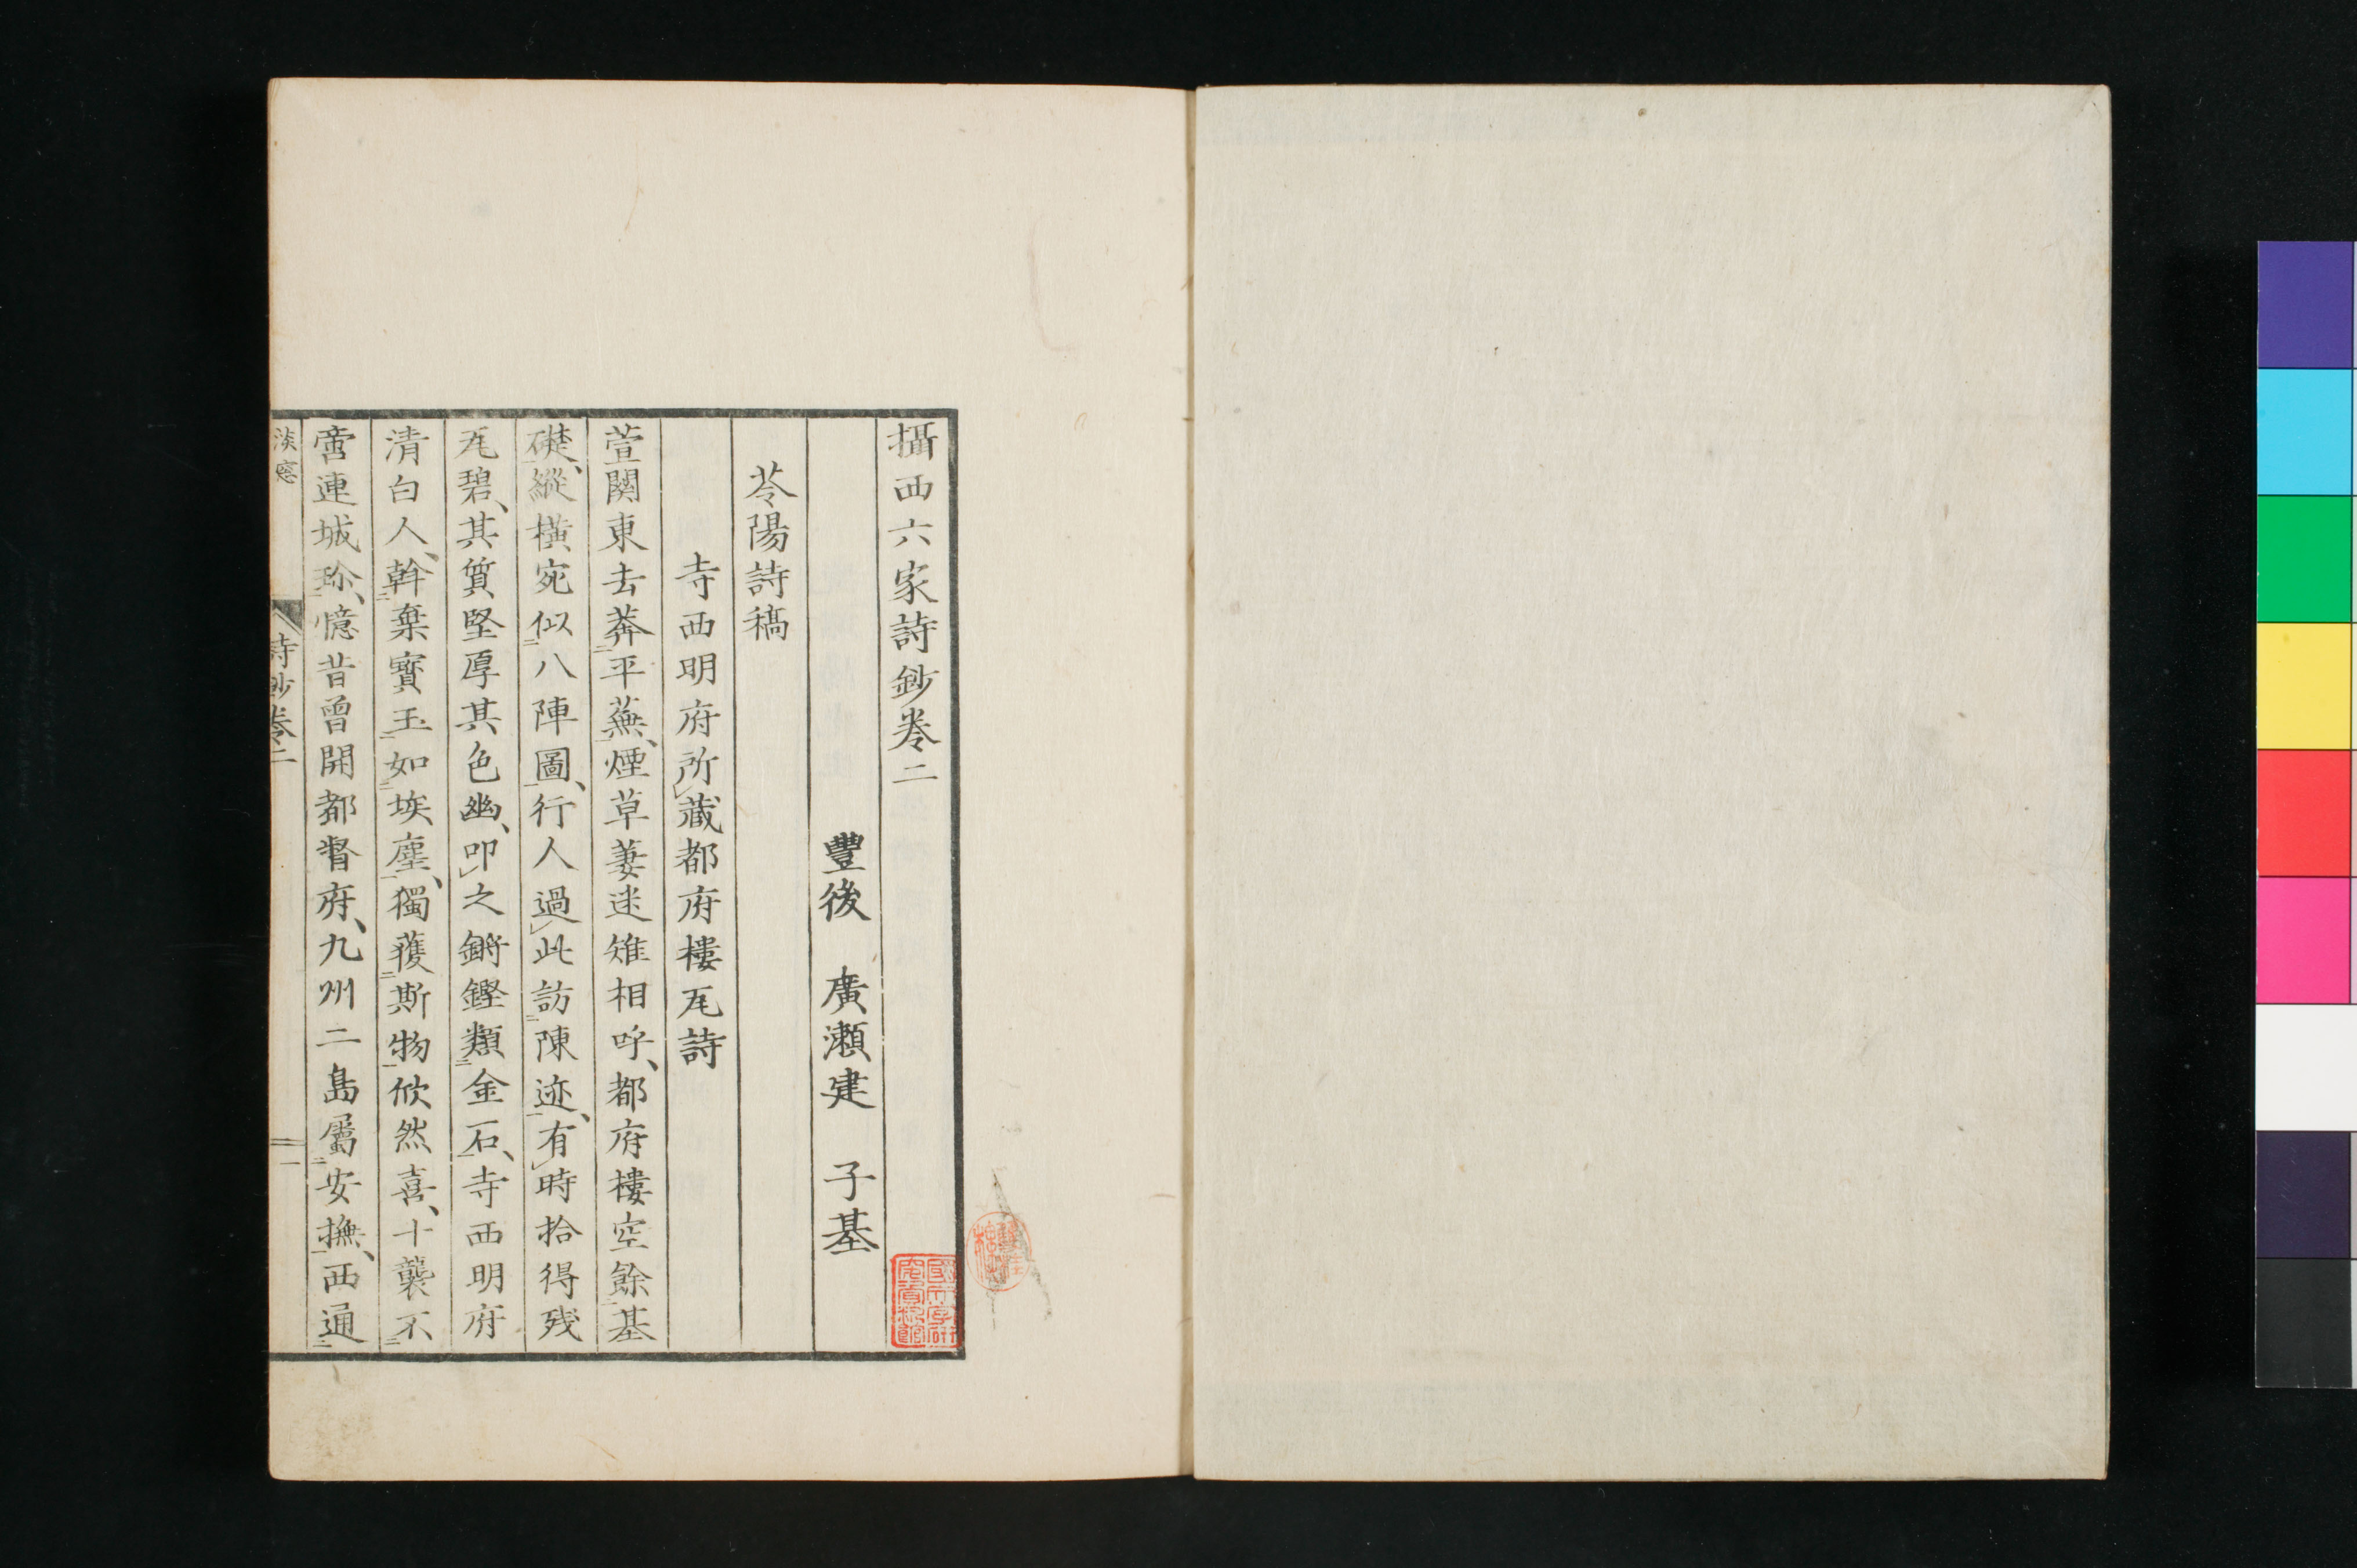 攝西六家詩鈔卷二
豐後 廣瀨建 子基
苓陽詩稿
寺西明府所藏都府樓瓦詩
萱關東去莽平蕪、煙草萋迷雉相呼、都府樓空餘基
礎、縱橫宛似八陣圖、行人過此訪陳迹、有時拾得殘
瓦碧、其質堅厚其色幽、叩之鏘鏗類金石、寺西明府
清白人、斡棄寶玉如埃塵、獨獲斯物欣然喜、十襲不
啻連城珍、憶昔曾開都督府、九州二島屬安撫、西通
淡窻
詩鈔卷二
一